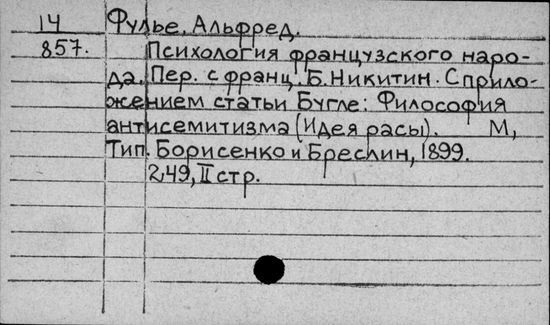 14 Фулье, Альфред.
857. Психология французского наро-
да. Пер. с франц. Б. Никитин. С прило-
жением статьи Бугле: Философия
антисемитизма (Идея расы). М,
Тип. Борисенко и Бреслин, 1899.
249, II стр.